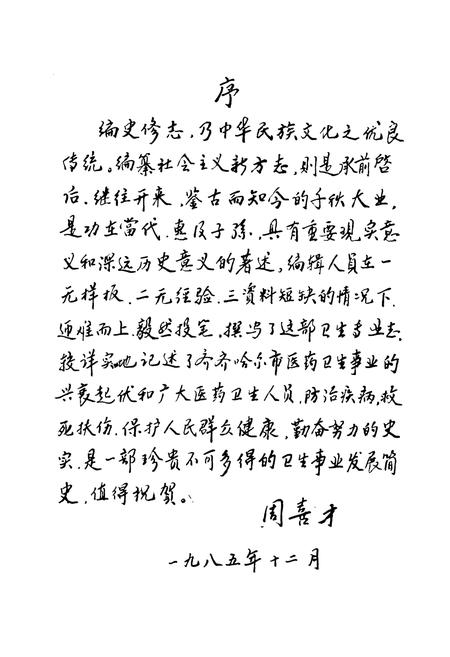 序
编史修志，乃中华民族文化之优良
传统。编纂社会主义新方志，则是承前啓
后、继往开来，鉴古而知今的千秋大业，
是功在當代、惠及子孫，具有重要现实意
义和深远历史意义的著述，编辑人員在一
无样板、二无经验、三資料短缺的情况下，
迎难而上，毅然投笔，撰写了这部卫生专业志，
较详实地记述了齐齐哈尔市医药卫生事业的
兴衰起伏和广大医药卫生人員，防治疾病，救
死扶伤，保护人民群众健康，勤奋努力的史
实，是一部珍贵不可多得的卫生事业发展简
史，值得祝贺。
周喜才
一九八五年十二月